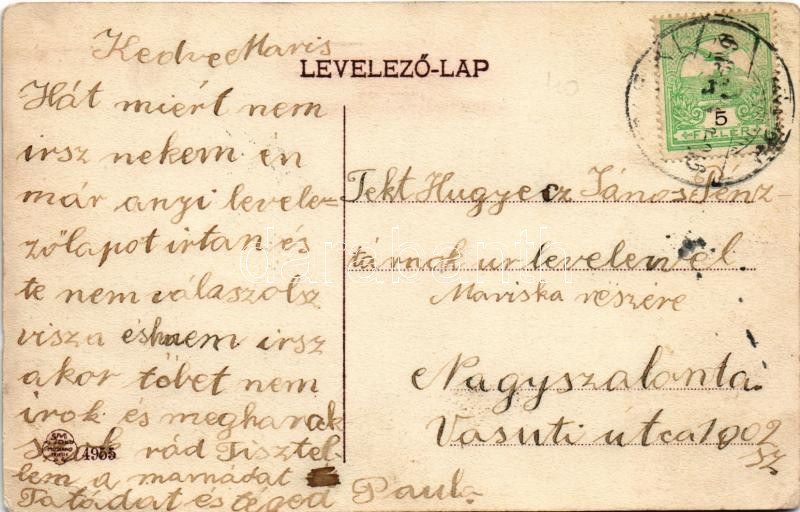 Kedve Maris
LEVELEZŐ-LAP
Hát miért nem
irsz nekem én
már anyi levele-
zőlapot irtan és
te nem válaszolsz
visza és ha nem irsz
akor többet nem
irok és megharak
rád Tisztel
lem a mamádat
Tatádat és téged Paula
Tekt Hugyecz János Pénz-
tárnok ur levelewél
Mariska részére
Nagyszalonta
Vasuti útca 1002
sz
5
FILLÉR
4955